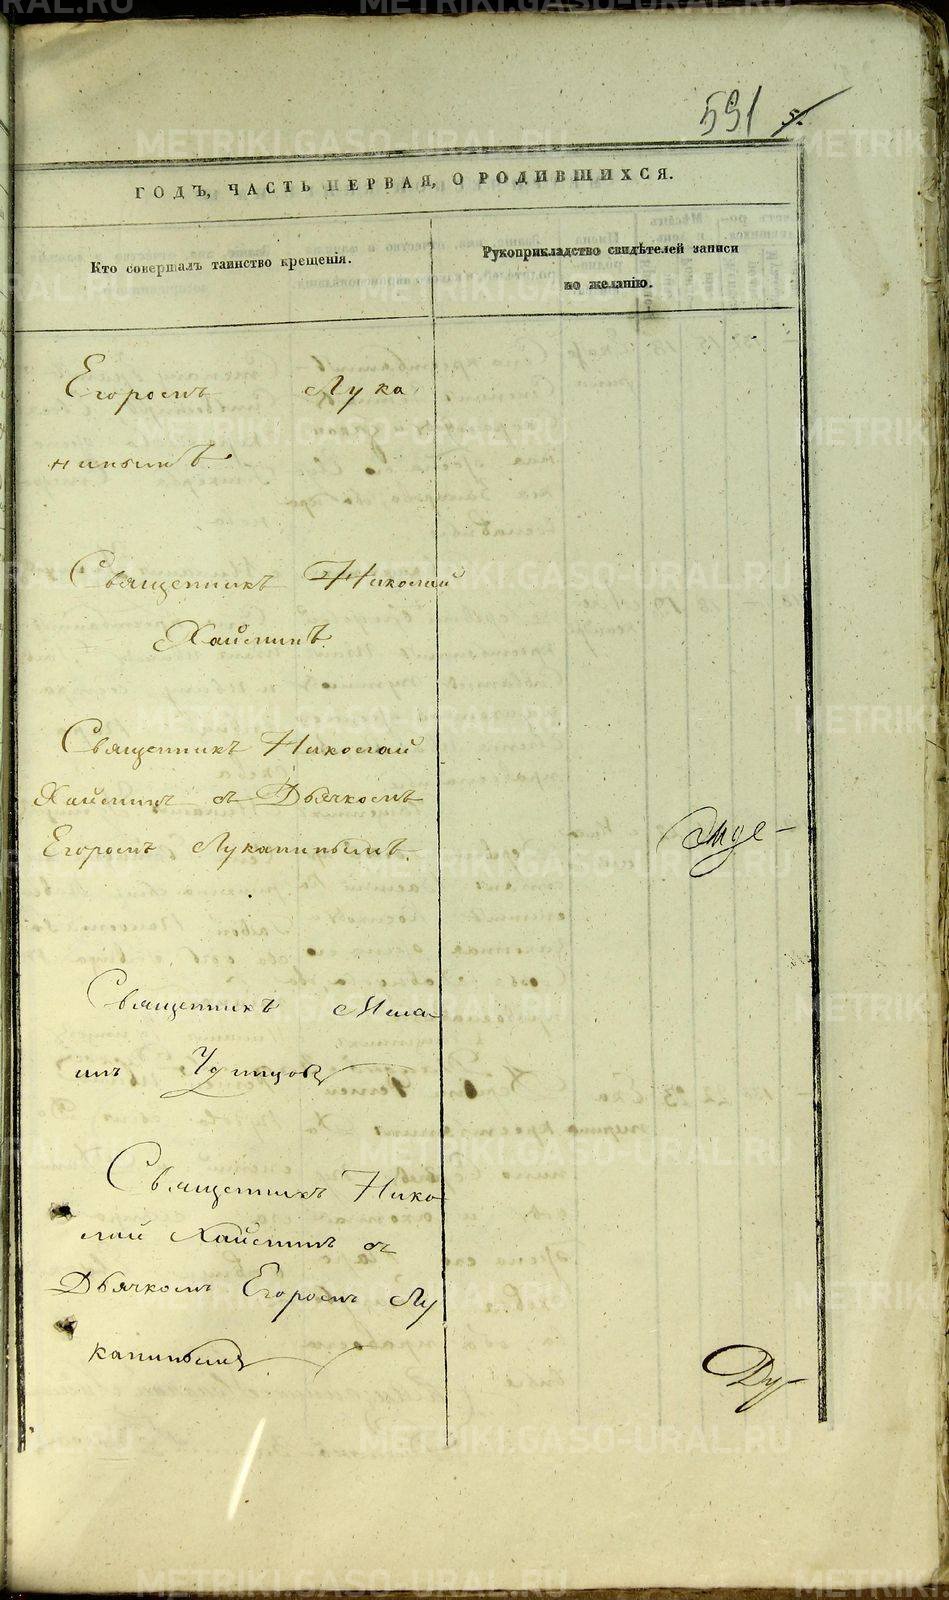 591
ГОДЪ, ЧАСТЬ ПЕРВАЯ, О РОДИВШИХСЯ.
Кто совершалъ таинство крещенія.
Рукоприкладство свидѣтелей записи
по желанію.
Егоромъ Лука
нинымъ.
Священникъ Николай
Хайминъ.
Священникъ Николай
Хайминъ съ Дьячкомъ
Егоромъ Луканинымъ.
Священникъ Мила-
инъ
Священникъ Нико
лай Хайминъ съ
Дьячкомъ Егоромъ Лу
канинымъ
METRIKI.GASO-URAL.RU